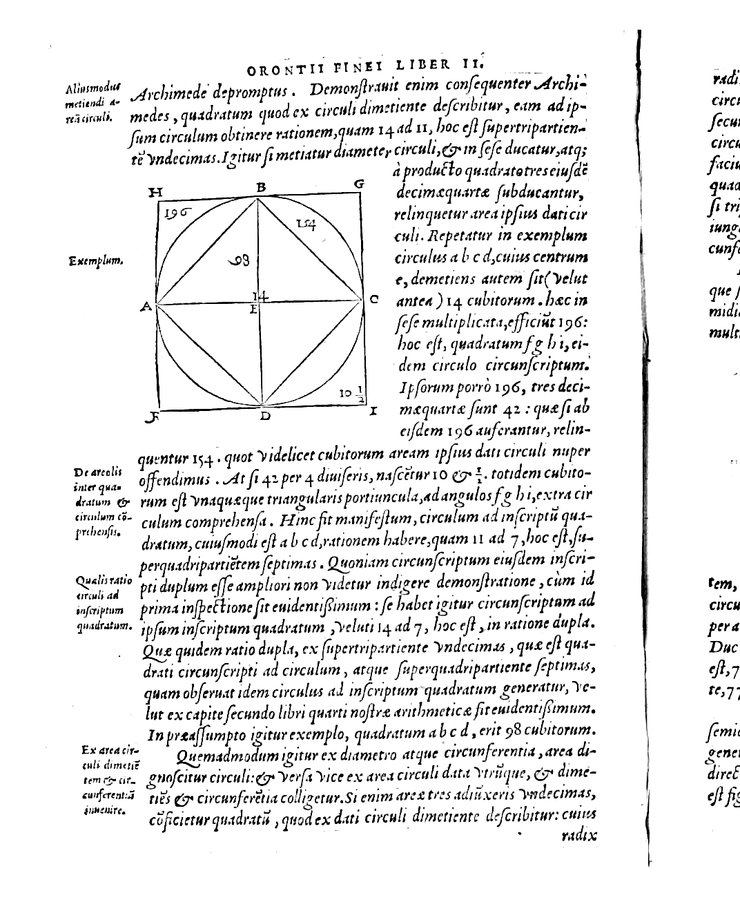 ORONTII FINEI LIBER II.
Alius modus
metiendi a-
reã circuli.
Archimede depromptus. Demonſtrauit enim conſequenter Archi-
medes, quadratum quod ex circuli dimetiente deſcribitur, eam ad ip-
ſum circulum obtinere rationem, quam 14 ad 11, hoc eſt ſupertripartien-
tẽ vndecimas. Igitur ſi metiatur diameter circuli, & in ſeſe ducatur, atq;
à producto quadrato tres eiuſdẽ
decimæquartæ ſubducantur,
relinquetur area ipſius dati cir
culi. Repetatur in exemplum
circulus a b c d, cuius centrum
e, demetiens autem ſit (velut
antea) 14 cubitorum. hæc in
ſeſe multiplicata, efficiũt 196:
hoc eſt, quadratum f g h i, ei-
dem circulo circunſcriptum.
Ipſorum porrò 196, tres deci-
mæquartæ ſunt 42: quæ ſi ab
eiſdem 196 auferantur, relin-
Exemplum.
H B G
196
154
98
14
A E C
10 1/2
F D I
quentur 154. quot videlicet cubitorum aream ipſius dati circuli nuper
offendimus. At ſi 42 per 4 diuiſeris, naſcẽtur 10 & 1/2. totidem cubito-
rum eſt vnaquæque triangularis portiuncula, ad angulos f g h i, extra cir
culum comprehenſa. Hinc fit manifeſtum, circulum ad inſcriptũ qua-
dratum, cuiuſmodi eſt a b c d, rationem habere, quam 11 ad 7, hoc eſt, ſu-
perquadripartiẽtem ſeptimas. Quoniam circunſcriptum eiuſdem inſcri-
pti duplum eſſe ampliori non videtur indigere demonſtratione, cùm id
prima inſpectione ſit euidentißimum: ſe habet igitur circunſcriptum ad
ipſum inſcriptum quadratum, veluti 14 ad 7, hoc eſt, in ratione dupla.
Quæ quidem ratio dupla, ex ſupertripartiente vndecimas, quæ eſt qua-
drati circunſcripti ad circulum, atque ſuperquadripartiente ſeptimas,
quam obſeruat idem circulus ad inſcriptum quadratum generatur, ve-
lut ex capite ſecundo libri quarti noſtræ arithmeticæ fit euidentißimum.
In præaſſumpto igitur exemplo, quadratum a b c d, erit 98 cubitorum.
De areolis
inter qua-
dratum &
circulum cõ-
prehenſis.
Qualis ratio
circuli ad
inſcriptum
quadratum.
Quemadmodum igitur ex diametro atque circunferentia, area di-
gnoſcitur circuli: & verſa vice ex area circuli data vtrũque, & dime-
tiẽs & circunferẽtia colligetur. Si enim areæ tres adiũxeris vndecimas,
cõficietur quadratũ, quod ex dati circuli dimetiente deſcribitur: cuius
radix
Ex area cir-
culi dimetiẽ
tem & cir-
cunferentiã
inuenire.
radi
circu
ſecun
circu
faciu
quad
ſi tri
iung
cunfe
que
midi
mult
tem,
circu
per a
Duc
eſt, 7
te, 77
ſemi
gener
direc
eſt fig